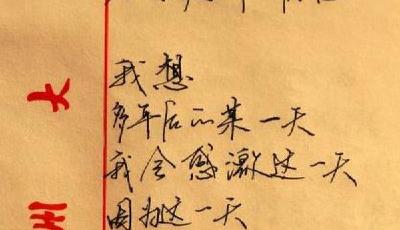 我想
多年后的某一天
我会感激这一天
因为这一天
大
州